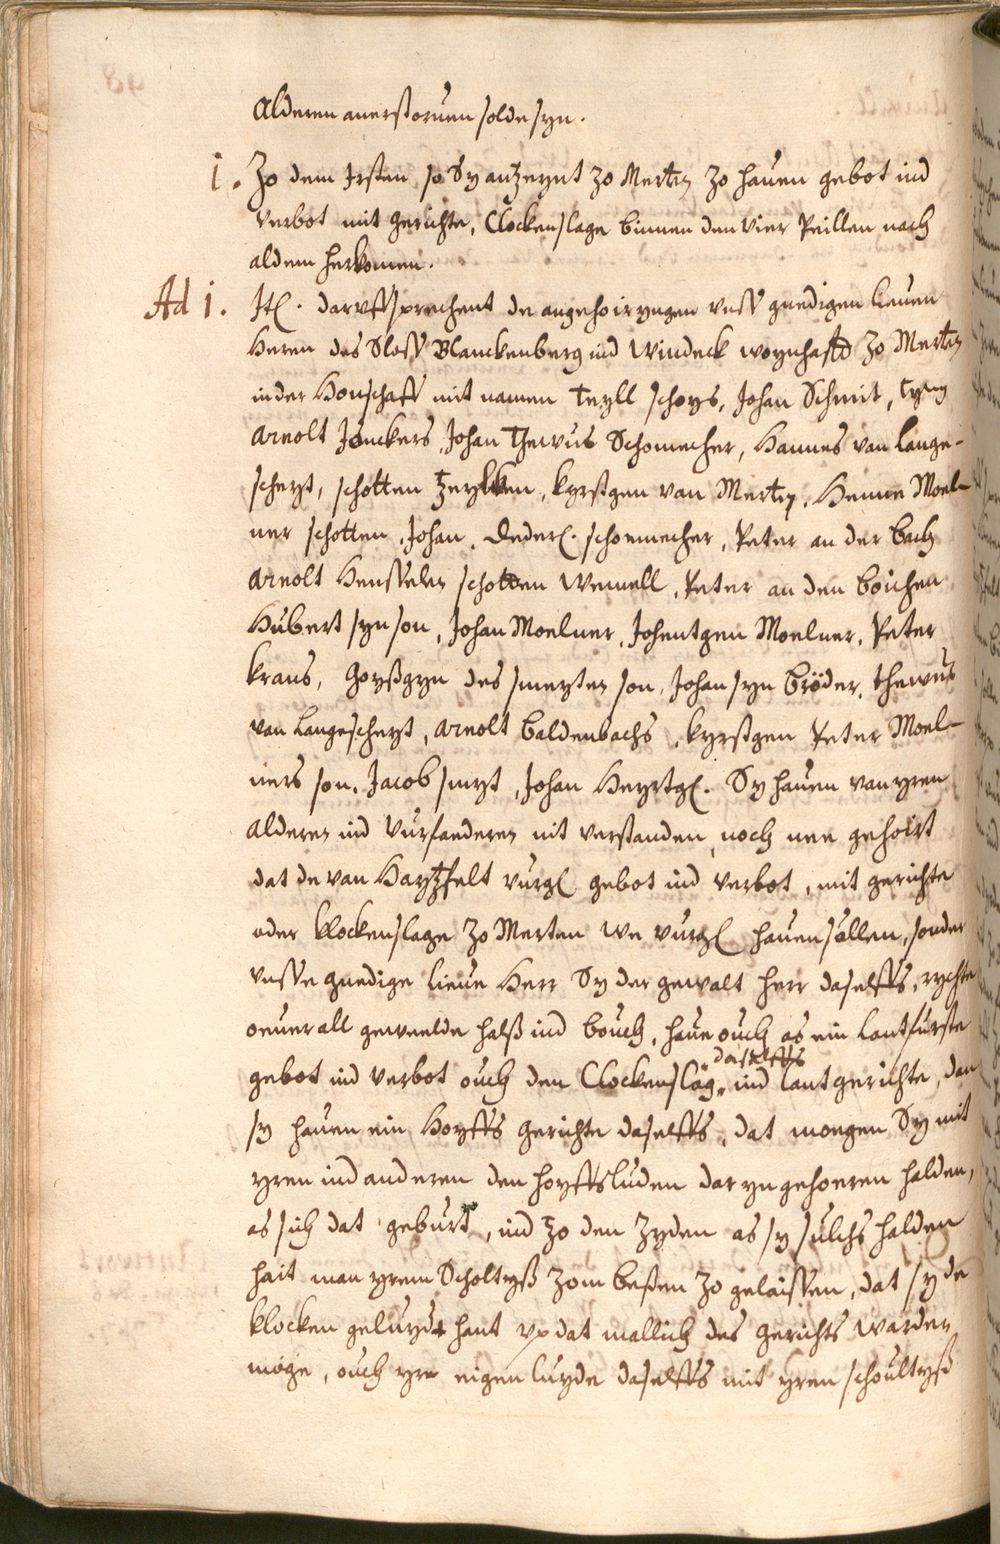 Alderen anerstoruen solde syn.
1. Zo dem Irsten so Sy antzeynt zo Merten zo hauen gebot ind
verbot mit gerichte, Clockenslage binnen den vier Peillen nach
aldem herkomen.
Ad 1. Itē. daruffsprechent de angehoiryngen vnss gnedigen lieuen
Heren des Sloss Blanckenberg ind Windeck woynhafft zo Merten
in der Honschafft mit namen Teyll schoys, Johan Schmit, Tyny
Arnolt Jonckers, Johan Thewus Schomecher, Hannes van Lange-
scheyt, schotten Tzeylken, kyrstgen van Merten, Henne Moel-
ner schotten, Johan, Dederē. schoemecher, Peter an der bach
Arnolt Hensselen schotten Wemell, Peter an den boichen
Hubert syn son, Johan Moelner, Johentgen Moelner, Peter
kraus, Goystgyn des smeyten son, Johan syn bröder, Thewus
van Langescheyt, Arnolt baldenbachs, kyrstgen Peter Moel-
ners son, Jacob smyt, Johan Heyrtgē. Sy hauen van yren
Alderen ind vurfaederen nit verstanden, noch nee gehoirt
dat de van Haytzfelt vurgē gebot ind verbot, mit gerichte
oder klockenslage zo Merten we vurgē hauen sullen, sonder
vnsse gnedige lieue Herr Sy der gewalt herr daselffs, rychte
oeuer all geweelde halß ind bouch, haue ouch as ein lantfurste
gebot ind verbot ouch den Clockenslag daselffs ind lantgerichte, dan
sy hauen ein Hoyffs gerichte daselffs, dat moegen Sy mit
yren ind anderen den hoyffsluden dar yn gehoeren halden,
as sich dat geburt, ind zo den zyden as sy sulchs halden
hait man yrem Scholtyß zom besten zo gelaissen, dat sy de
klocken geluydt hant vp dat mallich des gerichts warden
moge, ouch yre eigen luyde daselffs mit yren schoultyß